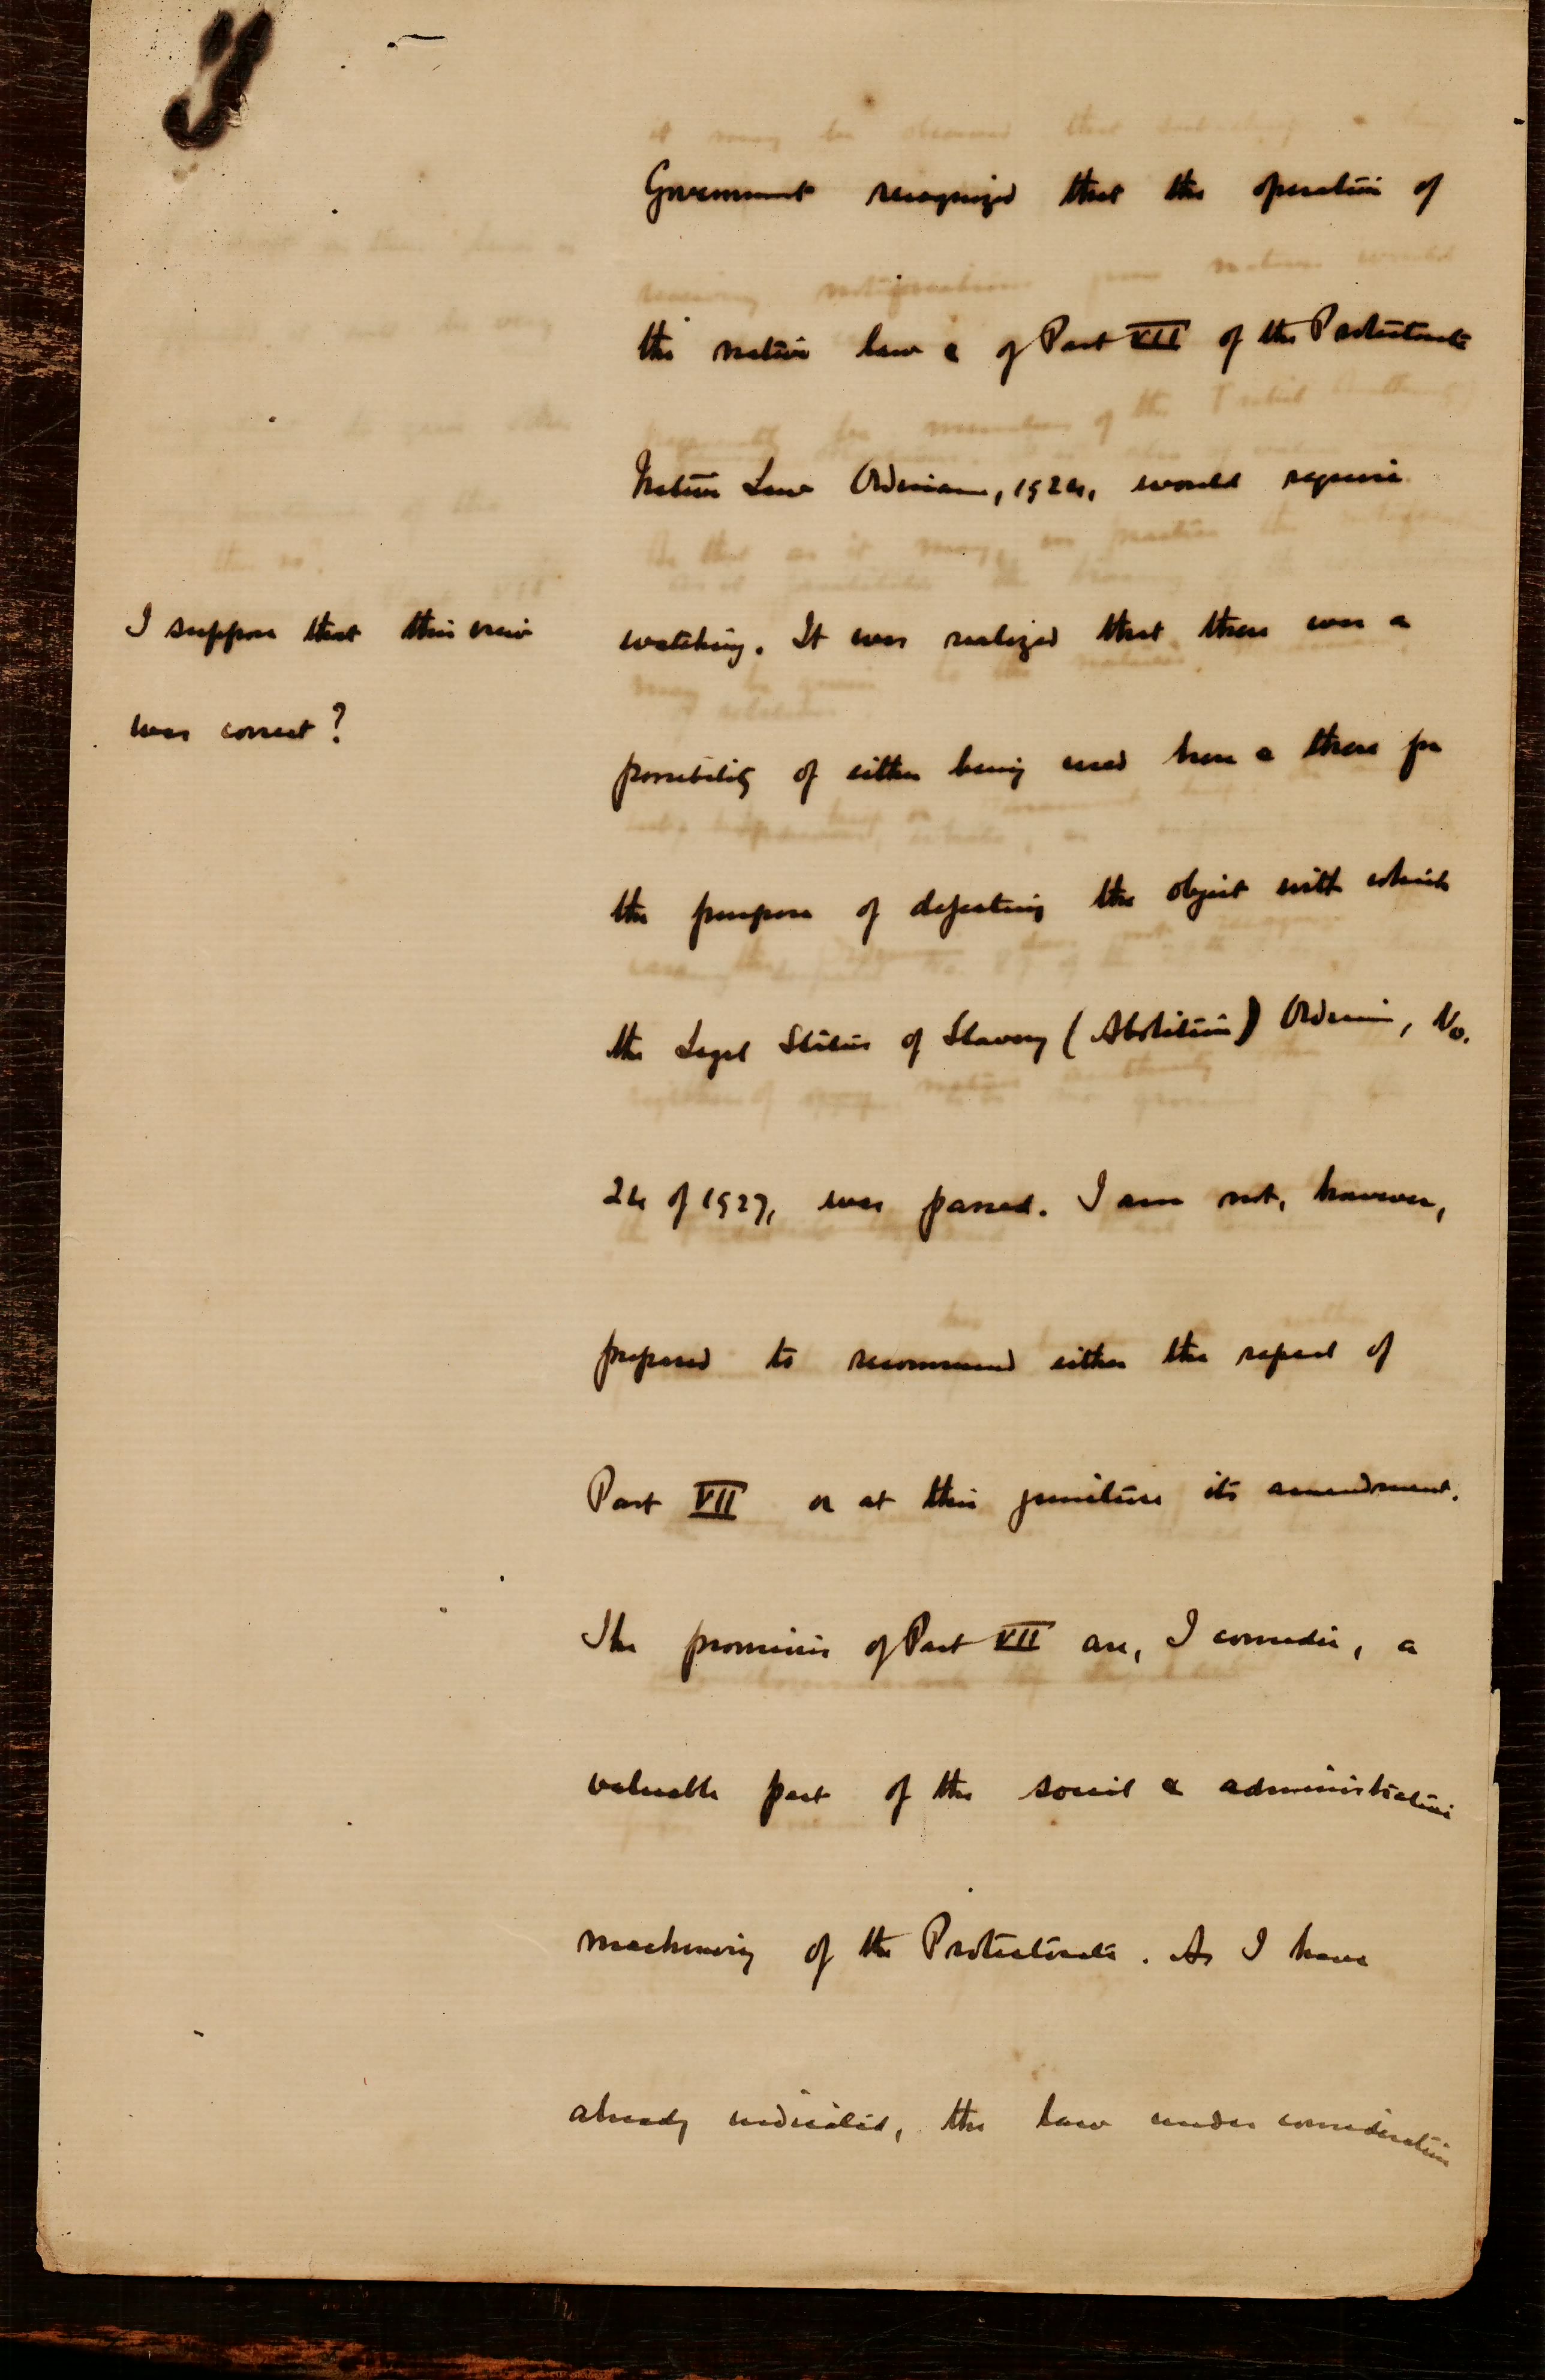 Government recognized that the operation of
the native law & of Part VII of the Protectorate
Native Law Ordinance, 1924, would require
watching. It was realized that there was a
possibility of either being used here & there for
the purpose of defeating the object with which
the Legal Status of Slavery (Abolition) Ordinance, No.
24 of 1927, was passed. I am not, however,
prepared to recommend either the repeal of
Part VII or at this juncture its amendment.
The provisions of Part VII are, I consider, a
valuable part of the social & administrative
machinery of the Protectorate. As I have
already indicated, the law under consideration
I suppose that this view
was correct?